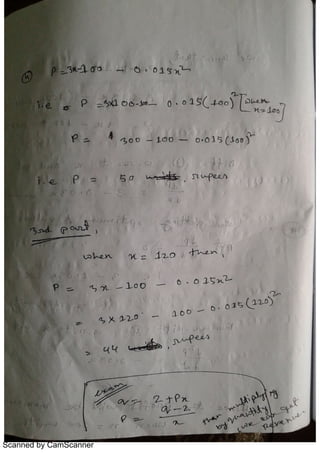 P = 3x-100 - 0.015x²
i.e P = 3x100-100 - 0.015(100)² [when x=100]
P = 300 - 100 - 0.015(100)²
i.e P = 50 units. rupees
3rd part,
when x = 120 then,
P = 3x - 100 - 0.015x²
= 3x120 - 100 - 0.015(120)²
= 44 rupees
exam
q = 2+Px
P = q-2/x
than multiplying
by quantity
we can get
Revenue.
Scanned by CamScanner